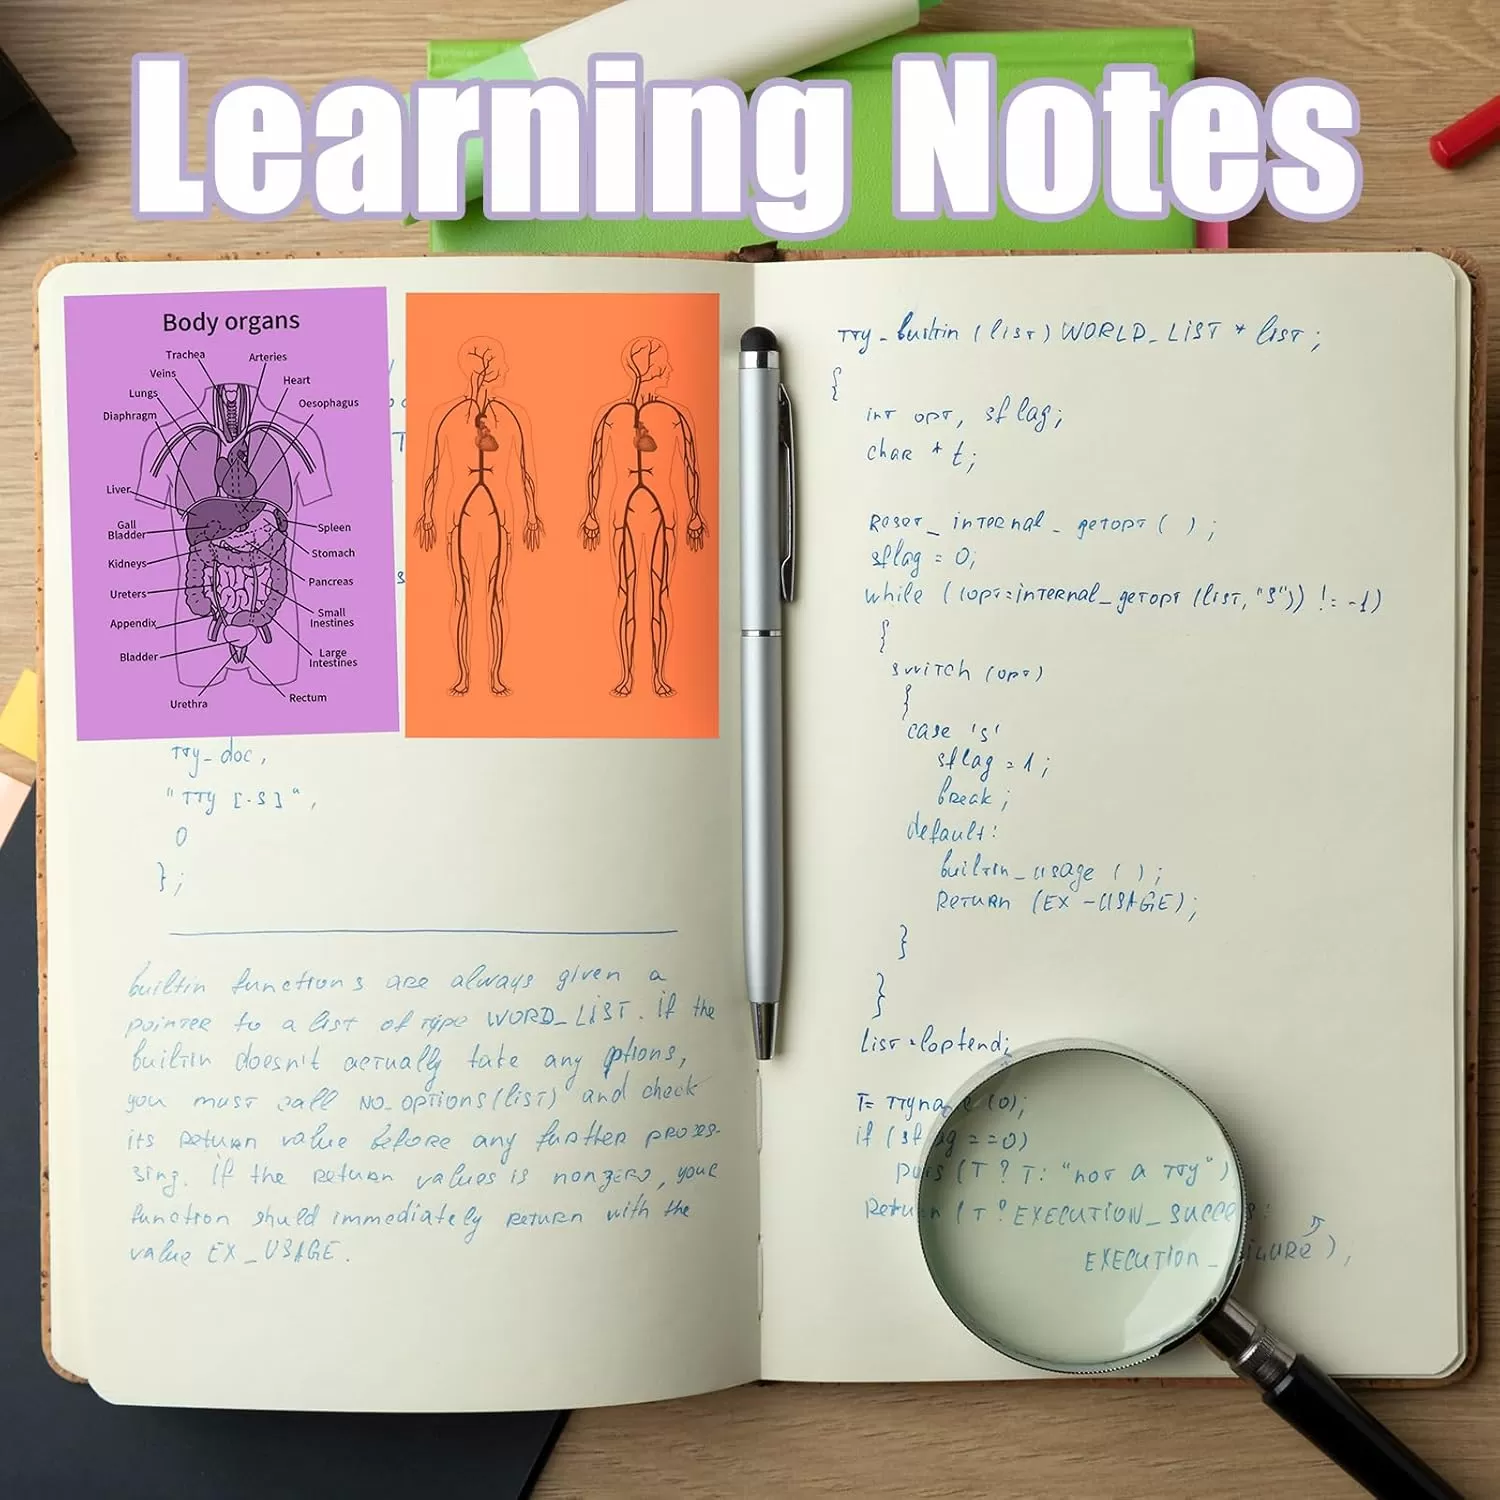 Learning Notes
Body organs
Trachea
Arteries
Veins
Heart
Lungs
Oesophagus
Diaphragm
Liver
Gall
Bladder
Spleen
Kidneys
Stomach
Ureters
Pancreas
Appendix
Small
Inestines
Bladder
Large
Intestines
Urethra
Rectum
tty_doc,
"TTY [-S]",
0
};
builtin functions are always given a
pointer to a list of type WORD_LIST. if the
builtin doesn't actually take any options,
you must call no_options(list) and check
its return value before any further proces-
sing. if the return values is nonzero, your
function shuld immediately return with the
value EX_USAGE.
tty_builtin (list) WORLD_LIST * list;
{
int opt, sflag;
char * t;
Reset_internal_getopt ( );
sflag = 0;
while ((opt=internal_getopt (list, "s")) != -1)
{
switch (opt)
{
case 's'
sflag = 1;
break;
default:
builtin_usage ( );
Return (EX-USAGE);
}
}
List = loptend;
T= ttyname (0);
if (sflag ==0)
puts (T ? T: "not a tty")
Return (T ? EXECUTION_SUCCESS:
EXECUTION_FAILURE),